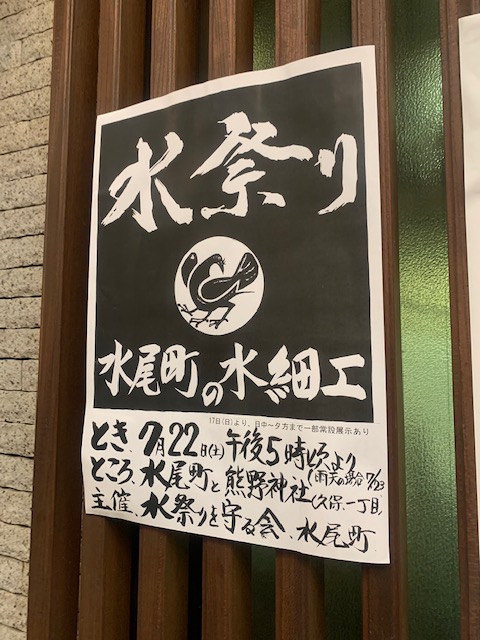 水祭り
水尾町の水細工
17日(日)より、日中～夕方まで一部常設展示あり
とき、7月22日(土)午後5時頃より
(雨天の場合7/23)
ところ、水尾町と熊野神社(久保、一丁目)
主催、水祭りを守る会、水尾町